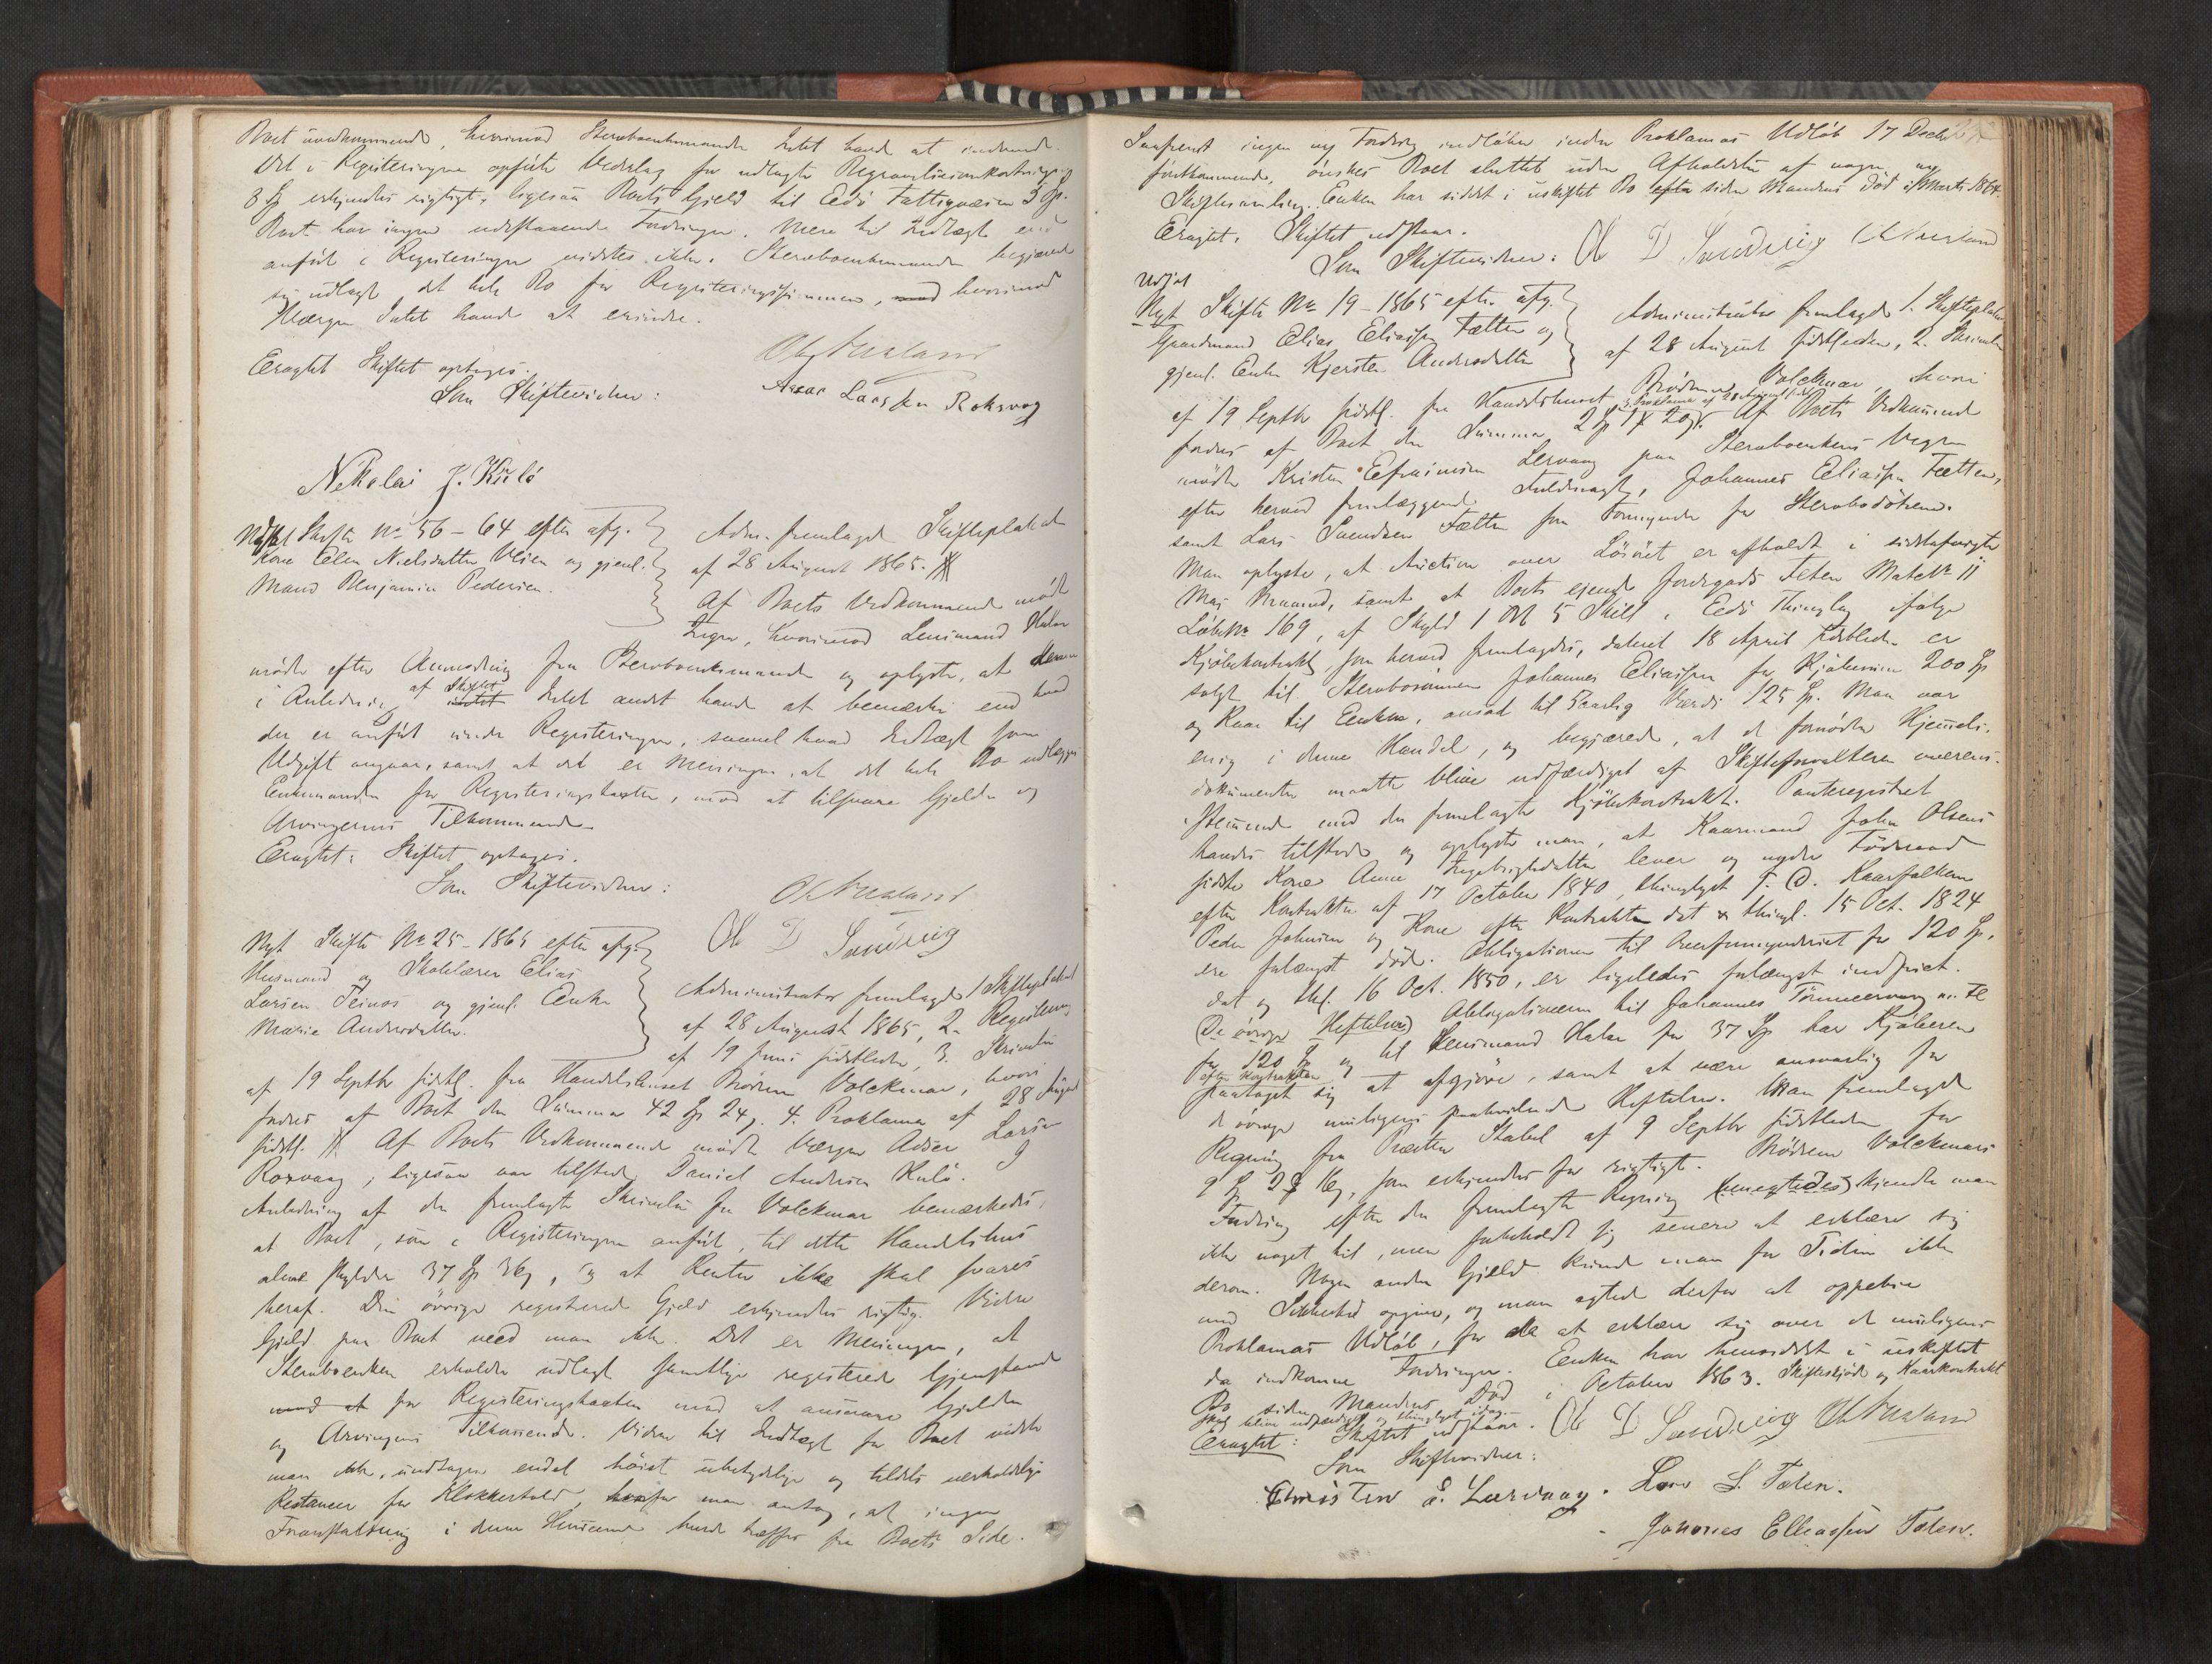 Boet uvedkommende, hvorimod Sterboenkemanden Intet havde at indvende.
Det i Registeringen opførte Vederlag for udlagte Begravelsesomkostninger
8 Sp erkjendtes rigtigt, ligesaa Boets Gjeld til Edø Fattigvæsen 5 Sp.
Boet har ingen udestaaende Fordringer. Mere til Indtægt end
anført i Registeringen vidstes ikke. Sterboenkemanden begjærede
sig udlagt det hele Bo for Registeringssummen, hvorimod
Værgen Intet havde at erindre.
Eragtet Skiftet optages.
Som Skiftevidner:
Assar Larssen Roksvog
Nikolai J. Kulö
Skifte No 56-64 efter afg.
Kone Elen Nielsdatter Veien og gjenl.
Mand Benjamin Pedersen.
Adm. fremlagde Skifteplakat
af 28 August 1865.
Af Boets Vedkommende mødte
Ingen, hvorimod Lensmand Hals
mødte efter Anmodning fra Sterboenkemanden og oplyste, at denne
i Anledning af Skiftet intet Intet andet havde at bemærke end hvad
der er anført under Registeringen, saavel hvad Indtægt som
Udgift angaar, samt at det er Meningen, at det hele Bo udlægges
Enkemanden for Registeringstaxten, mod at tilsvare Gjelden og
Arvingernes Tilkommende.
Eragtet: Skiftet optages.
Som Skiftevidner:
Ole D Sandvig
Nyt Skifte No 25-1865 efter afg.
Husmand og Skolelærer Elias
Larsen Teinæs og gjenl. Enke
Marie Andersdatter.
Administrator fremlagde 1 Skifteplakat
af 28 August 1865, 2. Registering
af 19 Juni sidstleden, 3. Skrivelse
af 19 Septbr sidstl. fra Handelshuset Brødrene Volckmar, hvori
fordres af Boet den Summa 42 Sp 24 s. 4. Proklama af 28 August
sidstl. Af Boets Vedkommende mødte Værgen Adser Larsen
Roxvaag, ligesom var tilstede Daniel Andersen Kulö. I
Anledning af den fremlagte Skrivelse fra Volckmar bemærkedes,
at Boet, som i Registeringen anført, til dette Handelshus
alene skylder 37 Sp, og at Renter ikke skal svares
heraf. Den øvrige registrerede Gjeld erkjendtes rigtig. Videre
Gjeld paa Boet veed man ikke. Det er Meningen, at
Sterboenken erholder udlagt samtlige registrerede Gjenstande
mod at for Registeringstaxten mod at ansvare Gjelden
og Arvingens Tilkommende. Videre til Indtægt for Boet vidste
man ikke, undtagen endel høist ubetydelige og tildels uerholdelige
Restancer for Klokkertold, hvorfor man antog, at ingen
Foranstaltning i denne Henseende burde træffes fra Boets Side.
Saafremt ingen ny Fordring indløber inden Proklamas Udløb 17 Decbr
førstkommende, ønskes Boet sluttet uden Afholdelse af nogen ny
Skiftesamling. Enken har siddet i uskiftet Bo efter siden Mandens Død i Marts 1864.
Eragtet. Skiftet udstaar.
Som Skiftevidner: Ole D Sandvig
Nyt Skifte No 19-1865 efter afg.
Gaardmand Elias Eliassen Fætten og
gjenl. Enke Kjersten Andersdatter
Administrator fremlagde 1. Skifteplakat
af 28 August sidstleden, 2. Skrivelse
af 19 Septbr sidstl. fra Handelshuset Brødrene Volckmar, hvori
fordres af Boet den Summa Af Boets Vedkommende
mødte Kristen Efraimsen Lervaag paa Sterboenkens Vegne
efter herved fremlæggende Fuldmagt, Johannes Eliassen Fætten,
samt Lars Svendsen Fætten som Formynder for Sterbodøtrene.
Man oplyste, at Auction over Løsøret er afholdt i sidstafvigte
Mai Maaned, samt at Boets eiende Jordegods Feten MatrNo 11
LøbeNo 169, af Skyld 1 Ort 5 Skill, i Edø Thinglag ifølge
Kjøbekontrakt, som herved fremlagdes, dateret 18 April sidstleden er
solgt til Sterbosønnen Johannes Eliassen for Kjøbesum 200 Sp
og Kaar til Enken, ansat til 5aarlig Værdi 125 Sp. Man var
enig i denne Handel, og begjærede, at de fornødne Hjemmels-
dokumenter maatte blive udfærdiget af Skifteforvalteren overens-
stemmende med den fremlagte Kjøbekontrakt. Panteregistret
havdes tilstede og oplyste man, at Kaarmand John Olsens
sidste Kone Anne Ingebrigtsdatter lever og nyder Føderaad
efter Kontrakten af 17 October 1840, thinglyst s. D. Kaarfolkene
Peder Johnsen og Kone efter Kontrakten dat & thingl. 15 Oct. 1824
ere forlængst døde. Obligationen til Overformynderiet for 120 Sp.
dat og thl. 16 Oct. 1850, er ligeledes forlængst indfriet.
De øvrige Heftelser) Obligationen til Johannes
for 120 Sp og til Lensmand Hals for 37 Sp har Kjøberen
efter Kontrakten
paataget sig at afgjøre, samt at være ansvarlig for
de øvrige muligens paahvilende Heftelser. Man fremlagde
Regning fra Præsten Stabel af 9 Septbr sidstleden for
9 Sp, som erkjendtes for rigtigt. Brødrene Volckmars
Fordring efter den fremlagte Regning (benegtedes) kjendte man
ikke noget til, men forbeholdt sig senere at erklære sig
derom. Nogen anden Gjeld kunde man for Tiden ikke
med Sikkerhed opgive, og man agtede derfor at oppebie
Proklamas Udløb, for da at erklære sig over de muligens
da indkomne Fordringer. Enken har hensiddet i uskiftet
Bo siden Mandens Død i October 1863. Skifteskjøde og Kaarkontrakt
skal blive udfærdiget og thinglyst idag.
Eragtet: Skiftet udstaar. Ole D Sandvig
Som Skiftevidner:
Christen E. Leervaag. Lars S. Fæten.
Johanes Elliassen Fæten.